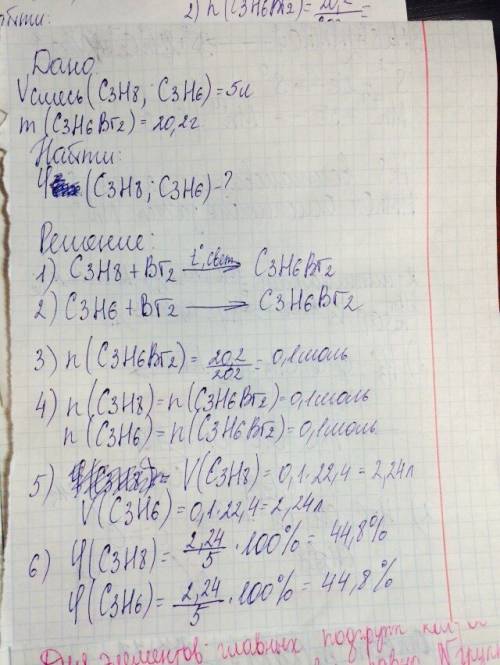 2) n(C3H6Br2) = 20,2 / 202 =
Дано
Vсмесь(C3H8; C3H6) = 5л
m(C3H6Br2) = 20,2г
Найти:
φ(C3H8; C3H6) - ?
Решение:
1) C3H8 + Br2 t°, свет → C3H6Br2
2) C3H6 + Br2 → C3H6Br2
3) n(C3H6Br2) = 20,2 / 202 = 0,1 моль
4) n(C3H8) = n(C3H6Br2) = 0,1 моль
n(C3H6) = n(C3H6Br2) = 0,1 моль
5) V(C3H8) = 0,1 · 22,4 = 2,24л
V(C3H6) = 0,1 · 22,4 = 2,24л
6) φ(C3H8) = 2,24 / 5 · 100% = 44,8%
φ(C3H6) = 2,24 / 5 · 100% = 44,8%
Для элементов главных подгрупп